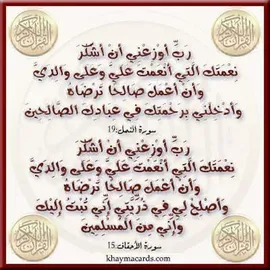 رَبِّ أَوْزِعْنِي أَنْ أَشْكُرَ
نِعْمَتَكَ الَّتِي أَنْعَمْتَ عَلَيَّ وَعَلَى وَالِدَيَّ
وَأَنْ أَعْمَلَ صَالِحًا تَرْضَاهُ
وَأَدْخِلْنِي بِرَحْمَتِكَ فِي عِبَادِكَ الصَّالِحِينَ
سورة النمل:19
رَبِّ أَوْزِعْنِي أَنْ أَشْكُرَ
نِعْمَتَكَ الَّتِي أَنْعَمْتَ عَلَيَّ وَعَلَى وَالِدَيَّ
وَأَنْ أَعْمَلَ صَالِحًا تَرْضَاهُ
وَأَصْلِحْ لِي فِي ذُرِّيَّتِي إِنِّي تُبْتُ إِلَيْكَ
وَإِنِّي مِنَ الْمُسْلِمِينَ
سورة الأحقاف:15
khaymacards.com